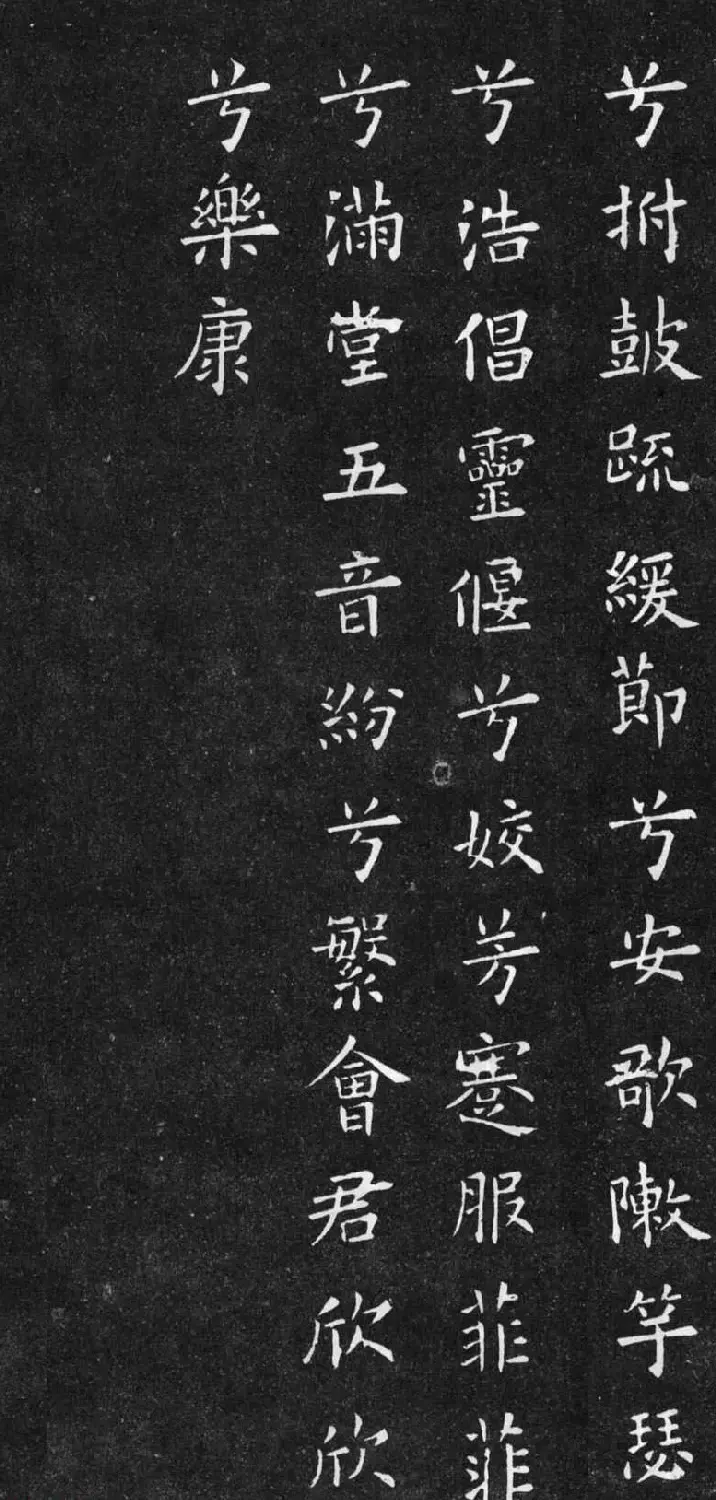 兮拊鼓疏緩節兮安歌陳竽瑟
兮浩倡靈偃兮姣芳蹇服菲菲
兮滿堂五音紛兮繁會君欣欣
兮樂康